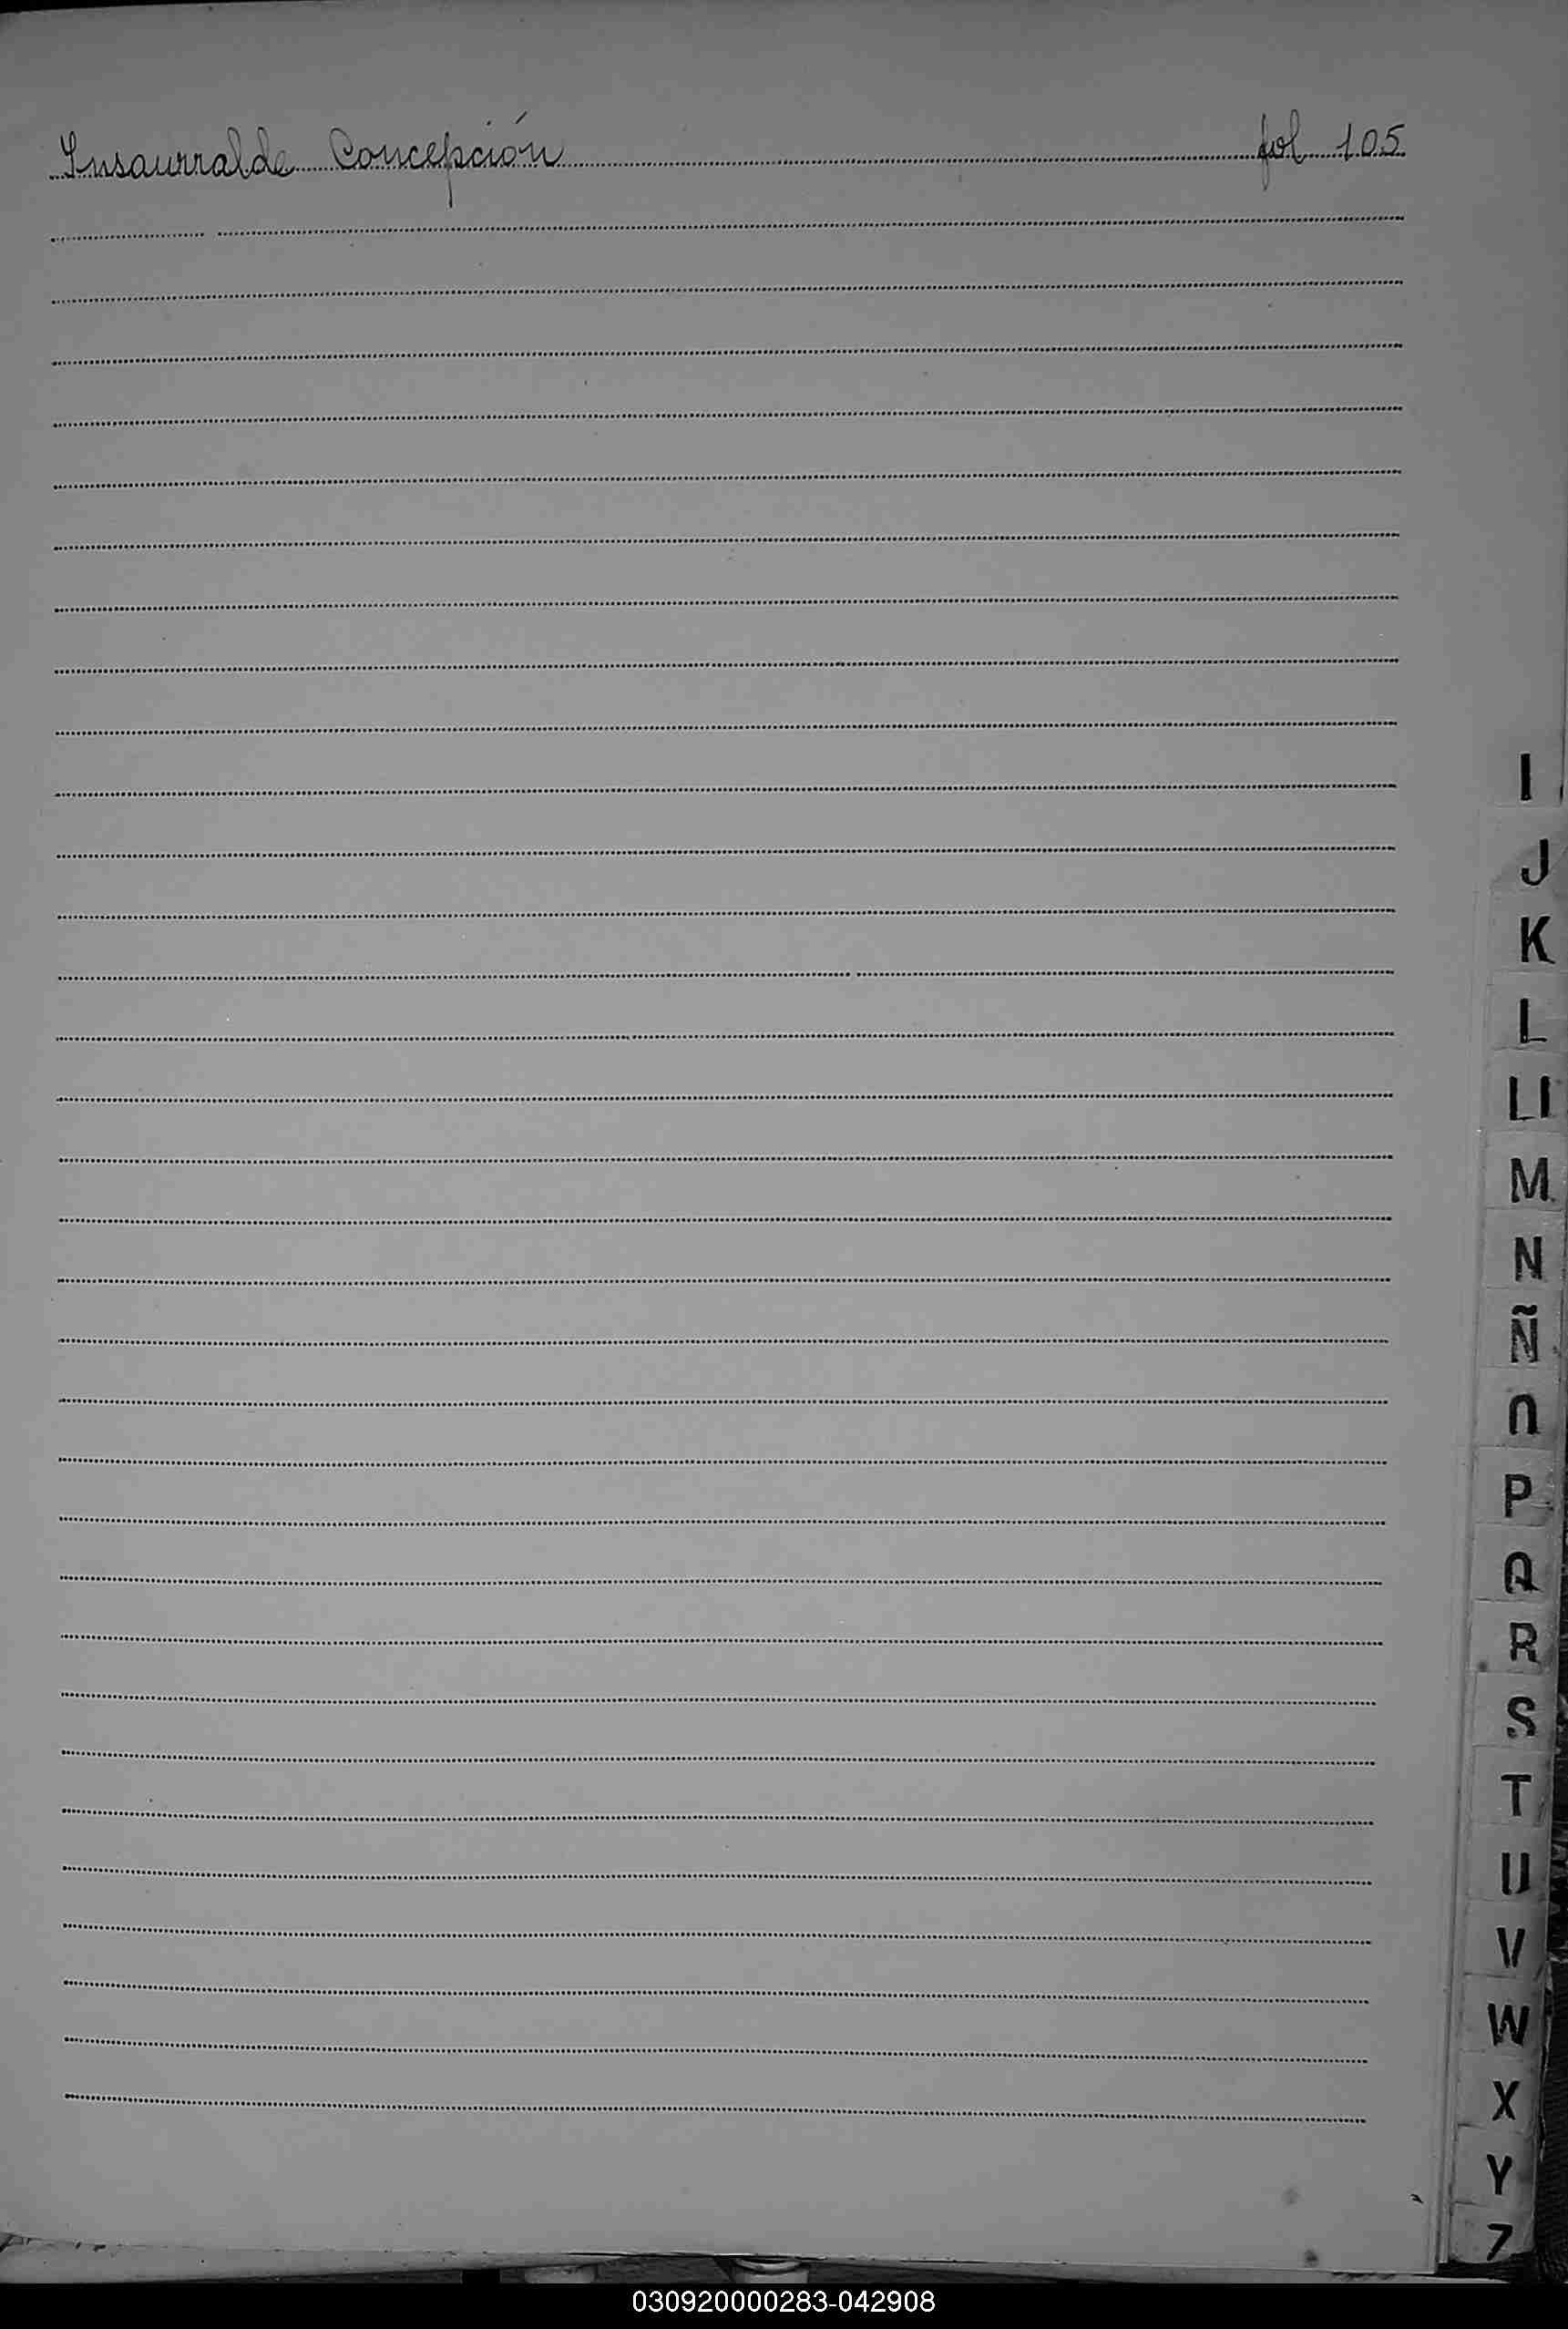 Insaurralde Concepción fol 105
I
J
K
L
Ll
M
N
Ñ
O
P
Q
R
S
T
U
V
W
X
Y
Z
030920000283-042908